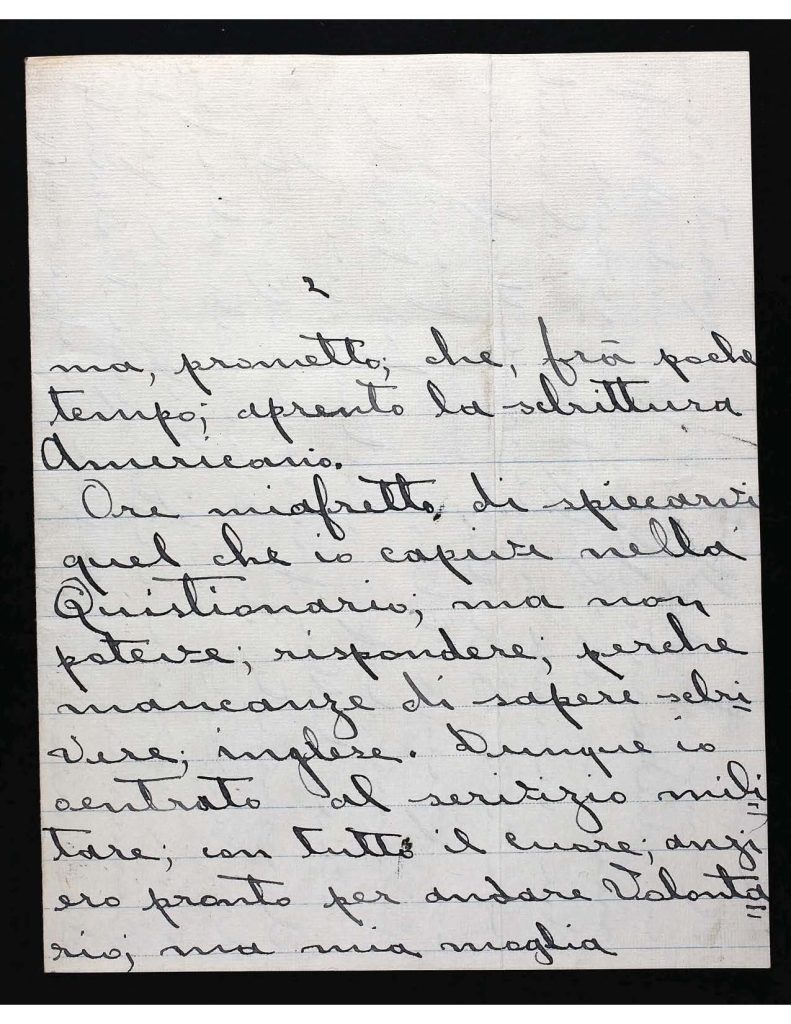 2
ma, prometto; che, frà poche
tempo; aprento la schrittura
Americano.
Ore miafretto di spieearvi
quel che io capive nella
Quistionario; ma non
poteve; rispondere; perche
mancanze di sapere schri
vere; inglese. Dunque io
oentrato al serivizio mili
tare; con tutto il cuore; anzi
ero pronto per andare Volonta
rio; ma mia moglia